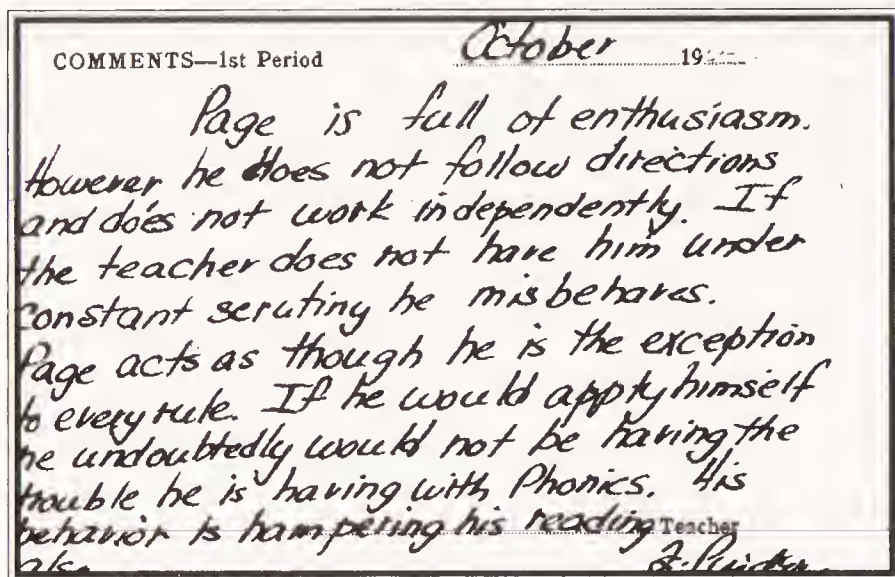 COMMENTS—1st Period October 19
Page is full of enthusiasm.
However he does not follow directions
and does not work independently. If
the teacher does not have him under
constant scrutiny he misbehaves.
Page acts as though he is the exception
to every rule. If he would apply himself
he undoubtedly would not be having the
trouble he is having with Phonics. His
behavior is hampering his reading Teacher
also